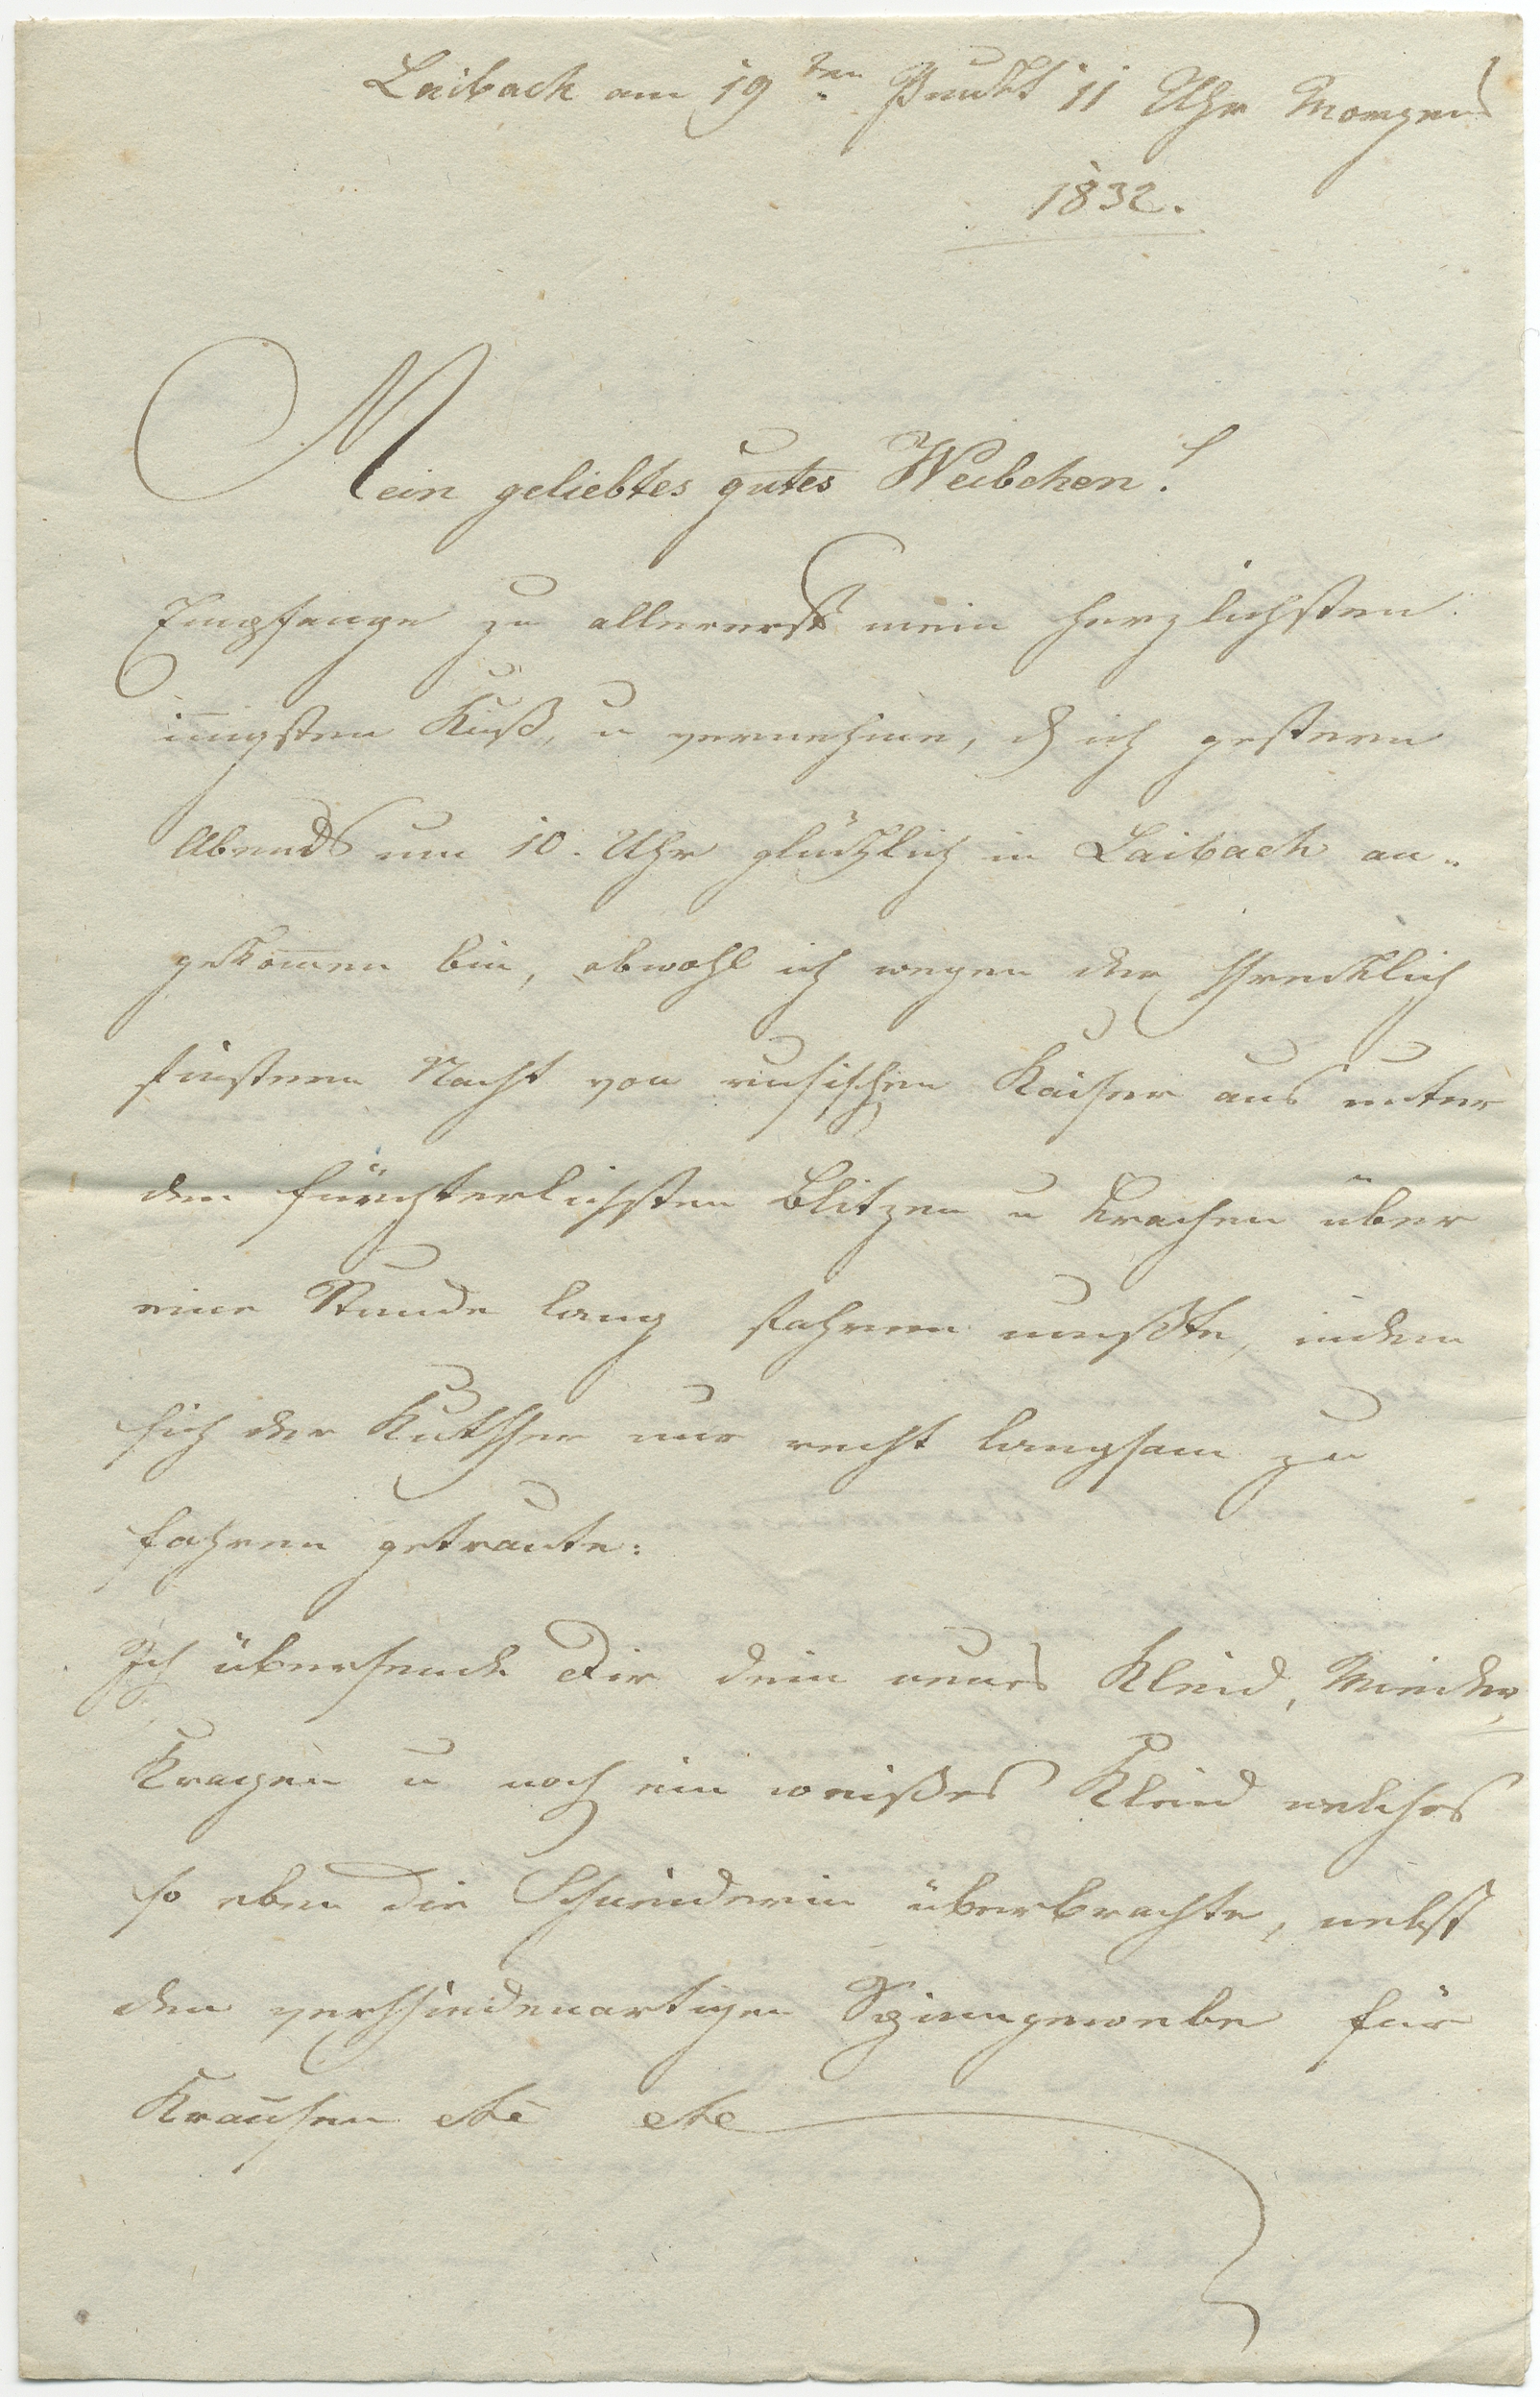 Laibach am 19ten Punkt 11 Uhr Morgens
1832.
Mein geliebtes gutes Weibchen!
Empfange zu allererst mein herzlichsten
iñigsten Kuß, u vernehme, dß ich gestern
Abends um 10. Uhr glücklich in Laibach an=
gekom̅en bin, obwohl ich wegen der schrecklich
finstern Nacht von rusischen Kaiser aus unter
den fürchterlichsten Blitzen u Krachen über
eine Stunde lang fahren mußte, indem
sich der Kutscher nur recht langsam zu
fahren getraute:
Ich übersende Dir dein neues Kleid, Mieder,
Kragen u noch ein weißes Kleid welches
so eben die Schneiderin überbrachte, nebst
den verschiedenartigen Spinngewebe für
Krausen etc etc